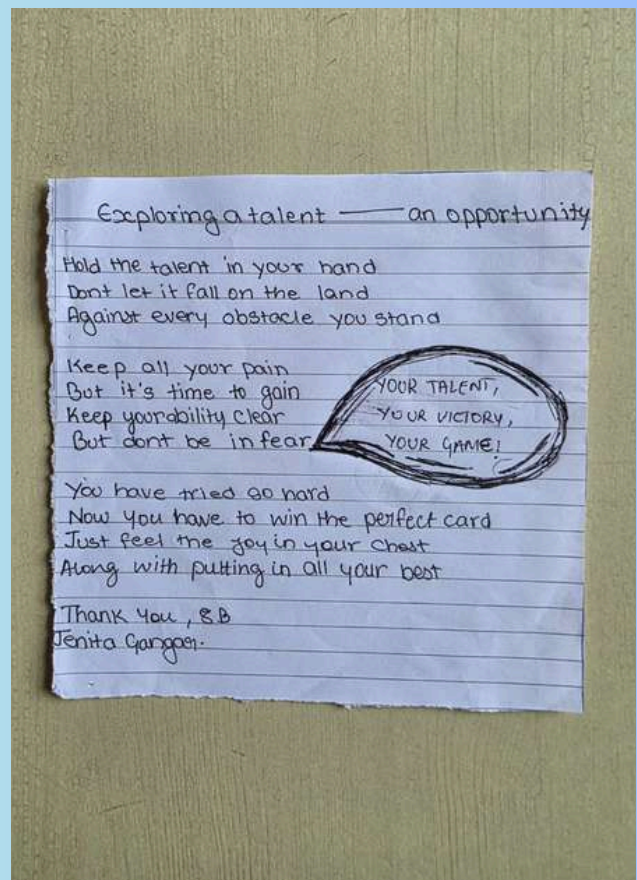 Exploring a talent — an opportunity
Hold the talent in your hand
Dont let it fall on the land
Against every obstacle you stand
Keep all your pain
But it's time to gain
Keep your ability clear
But dont be in fear
YOUR TALENT,
YOUR VICTORY,
YOUR GAME!
You have tried so hard
Now you have to win the perfect card
Just feel the joy in your chest
Along with putting in all your best
Thank you, 8B
Jenita